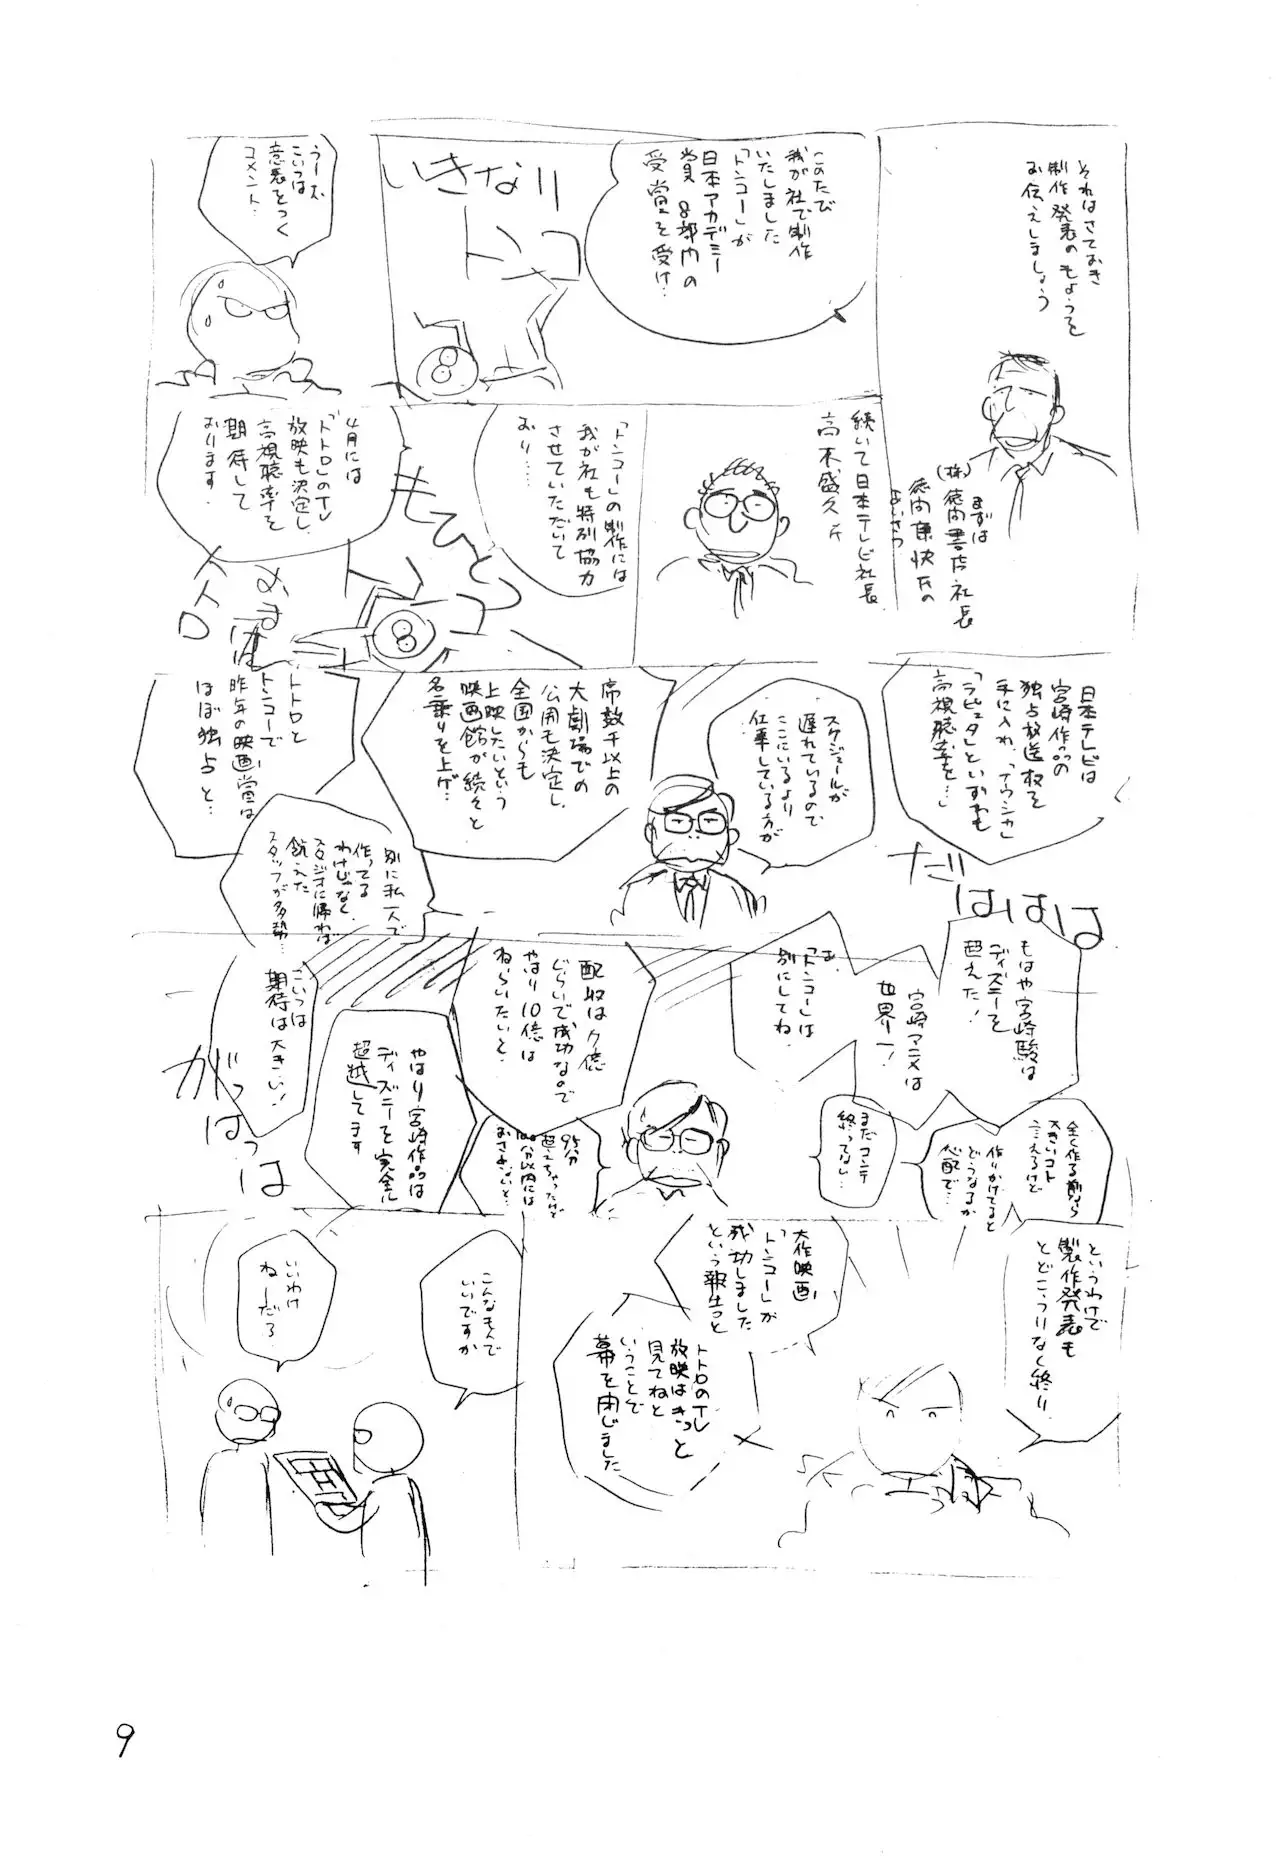 それはさておき
制作発表のもようを
お伝えしましょう
まずは
(株)徳間書店社長
徳間康快氏の
あいさつ
このたび
我が社で制作
いたしました
「トンコー」が
日本アカデミー
賞8部門の
受賞を受け…
いきなり
トンコー
うーむ
こいつは
意表をつく
コメント…
続いて日本テレビ社長
高木盛久氏
「トンコー」の制作には
我が社も特別協力
させていただいて
おり……
もひとつ
トンコー
4月には
「トトロ」のTV
放映も決定し、
高視聴率を
期待して
おります.
トトロ
日本テレビは
宮崎作品の
独占放送権を
手に入れ、「ナウシカ」
「ラピュタ」といずれも
高視聴率を…」
だはははは
スケジュールが
遅れているので
ここにいるより
仕事している方が
席数千以上の
大劇場での
公開も決定し、
全国からも
上映したいという
映画館が続々と
名乗りを上げ…
トトロと
トンコーで
昨年の映画賞は
ほぼ独占と…
別に私一人で
作ってる
わけじゃなく、
スタジオに帰れば
飢えた
スタッフが多勢…
もはや宮崎駿は
ディズニーを
超えた!
宮崎アニメは
世界一!
「トンコー」は
別にしてね
全く作る前なら
大きいコト
言えるけど
作りかけてると
どうなるか
心配で…
まだコンテ
終ってない…
配収はク億
ぐらいで成功なので
やはり10億は
ねらいたいと.
95分
超えちゃったけど
100分以内には
おさめたいと…
やはり宮崎作品は
ディズニーを完全に
超越してます
こいつは
期待は大きい!
がっはっは
というわけで
製作発表も
とどこうりなく終り
大作映画
「トンコー」が
成功しました
という報告と
トトロのTV
放映はきっと
見てねと
いうことで
幕を閉じました
こんなもんで
いいですか
いいわけ
ねーだろ
9